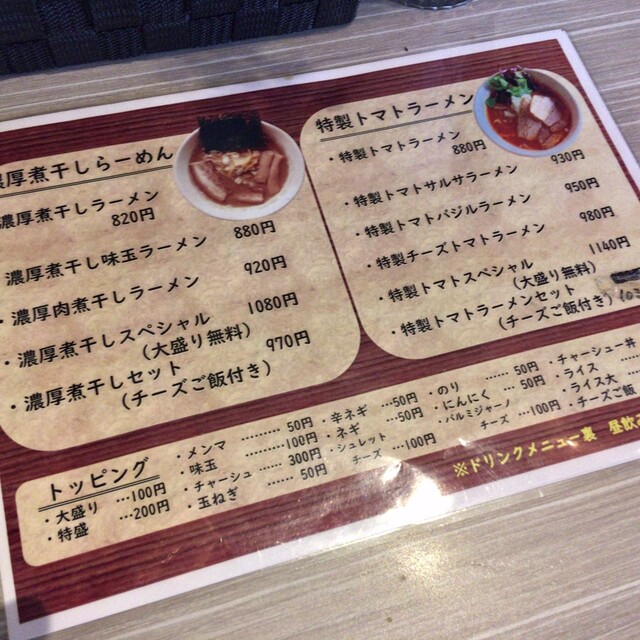 濃厚煮干しらーめん
濃厚煮干しラーメン
820円
濃厚煮干し味玉ラーメン
880円
・濃厚肉煮干しラーメン
920円
・濃厚煮干しスペシャル
1080円
(大盛り無料)
・濃厚煮干しセット
970円
(チーズご飯付き)
特製トマトラーメン
・特製トマトラーメン
880円
・特製トマトサルサラーメン
930円
・特製トマトバジルラーメン
950円
・特製チーズトマトラーメン
980円
・特製トマトスペシャル
1140円
(大盛り無料)
・特製トマトラーメンセット
(チーズご飯付き)
トッピング
・大盛り …100円
・特盛 …200円
・メンマ ………50円
・味玉 ………100円
・チャーシュ ……300円
・玉ねぎ …… 50円
・辛ネギ …50円
・ネギ ……50円
・シュレット
チーズ …100円
・のり ……50円
・にんにく … 50円
・パルミジャーノ
チーズ …100円
・チャーシュー丼
・ライス ……
・ライス大 …
・チーズご飯
※ドリンクメニュー裏 昼飲